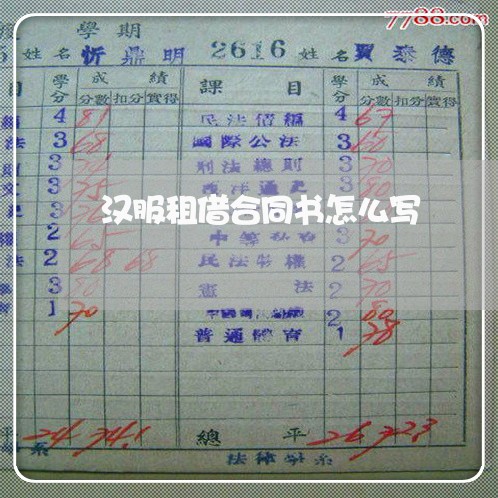 7788.com
學期
姓名 忻鼎明 2616 姓名 賈泰德
目 學分 成績 課目 學分 成績
分數 扣分 實得 分數 扣分 實得
4 81 民法債編 4 67
法 3 68 國際公法 3 60
3 刑法總則 3 70
3 75 3 80
汉服租借合同书怎么写
2 65 3 70
法 2 68 68 民法物權 2 65
3 80 憲法 2 70
1 70 2 80
普通體育 1 78
平 24 74.1 總平 26 72.3
系 法律學系